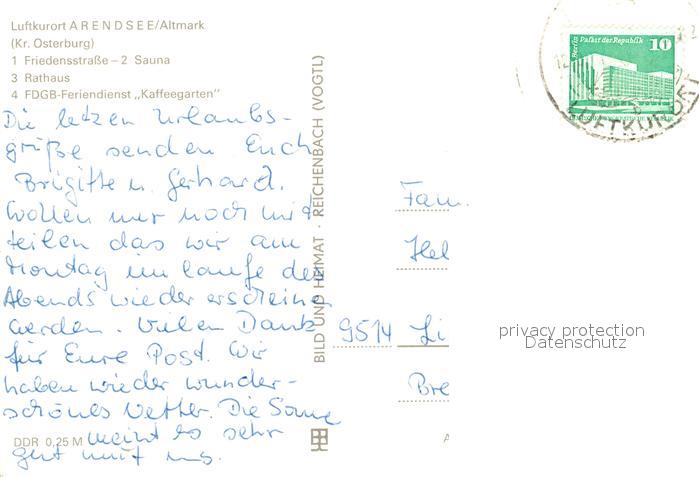 Luftkurort ARENDSEE/Altmark
(Kr. Osterburg)
1 Friedensstraße – 2 Sauna
3 Rathaus
4 FDGB-Feriendienst „Kaffeegarten"
Die letzen Urlaubs-
grüße senden Euch
Brigitte u. Gerhard.
Wollen nur noch mit
teilen das wir am
Montag im laufe des
Abends wieder erscheinen
werden. Vielen Dank
für Eure Post. Wir
haben wieder wunder-
schönes Wetter. Die Sonne
meint es sehr
gut mit uns.
DDR 0,25 M
BILD UND HEIMAT · REICHENBACH (VOGTL)
Berlin Palast der Republik 10
LUFTKURORT
Fam.
Hel
9514 Li
Bre
privacy protection
Datenschutz
A